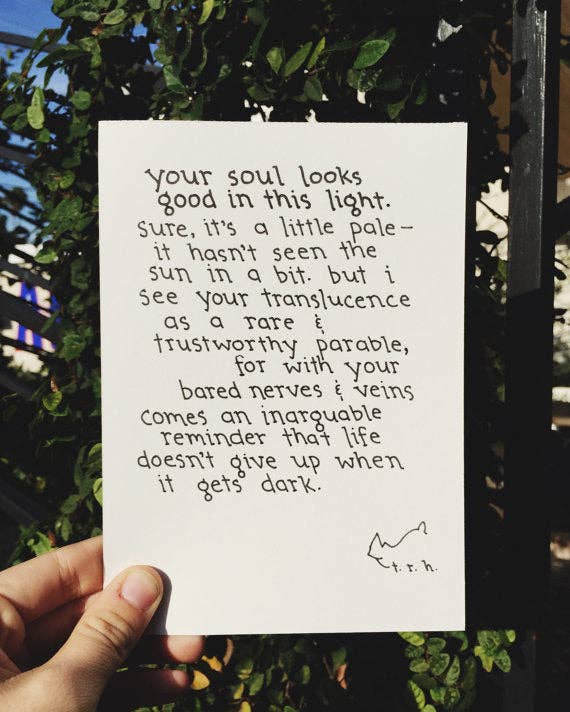 your soul looks
good in this light.
sure, it's a little pale—
it hasn't seen the
sun in a bit. but i
see your translucence
as a rare &
trustworthy parable,
for with your
bared nerves & veins
comes an inarguable
reminder that life
doesn't give up when
it gets dark.
t. r. h.